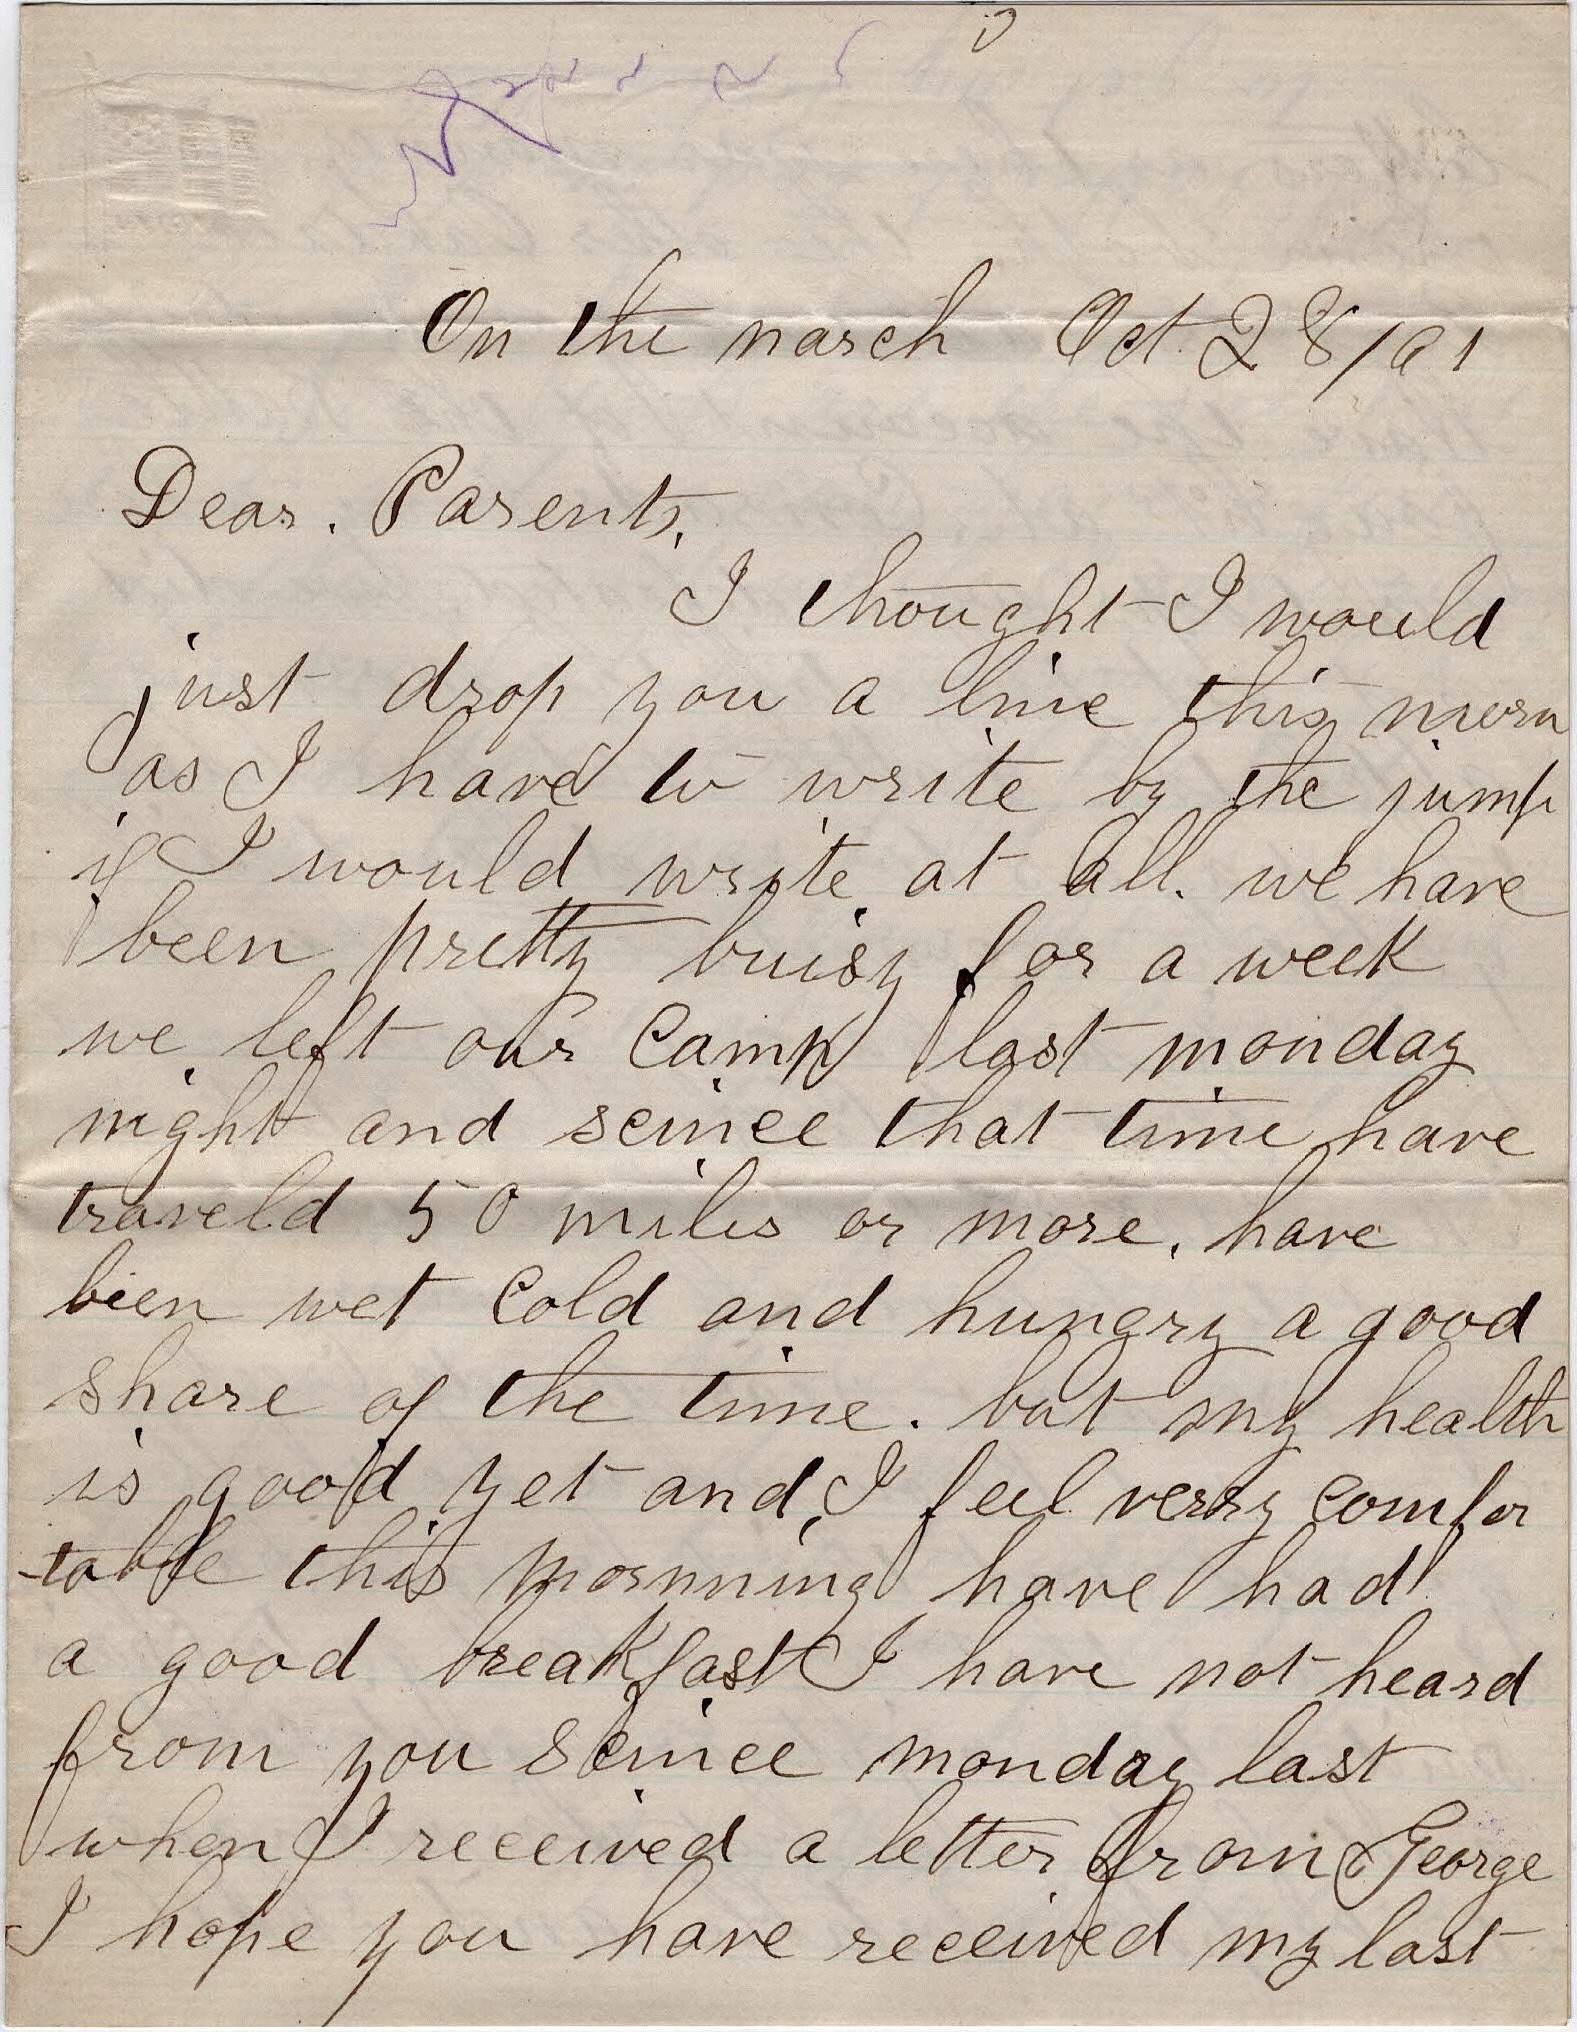 On the march Oct. 28/61
Dear. Parents,
I thought I would
just drop you a line this morn
as I have to write by the jump
if I would write at all. we have
been pretty buisy for a week
we left our Camp last monday
night and seince that time have
traveld 50 miles or more. have
bien wet Cold and hungry a good
share of the time. but my health
is good yet and I feel verry comfor
-table this mornning have had
a good breakfast I have not heard
from you seince monday last
when I received a letter from George
I hope you have received my last